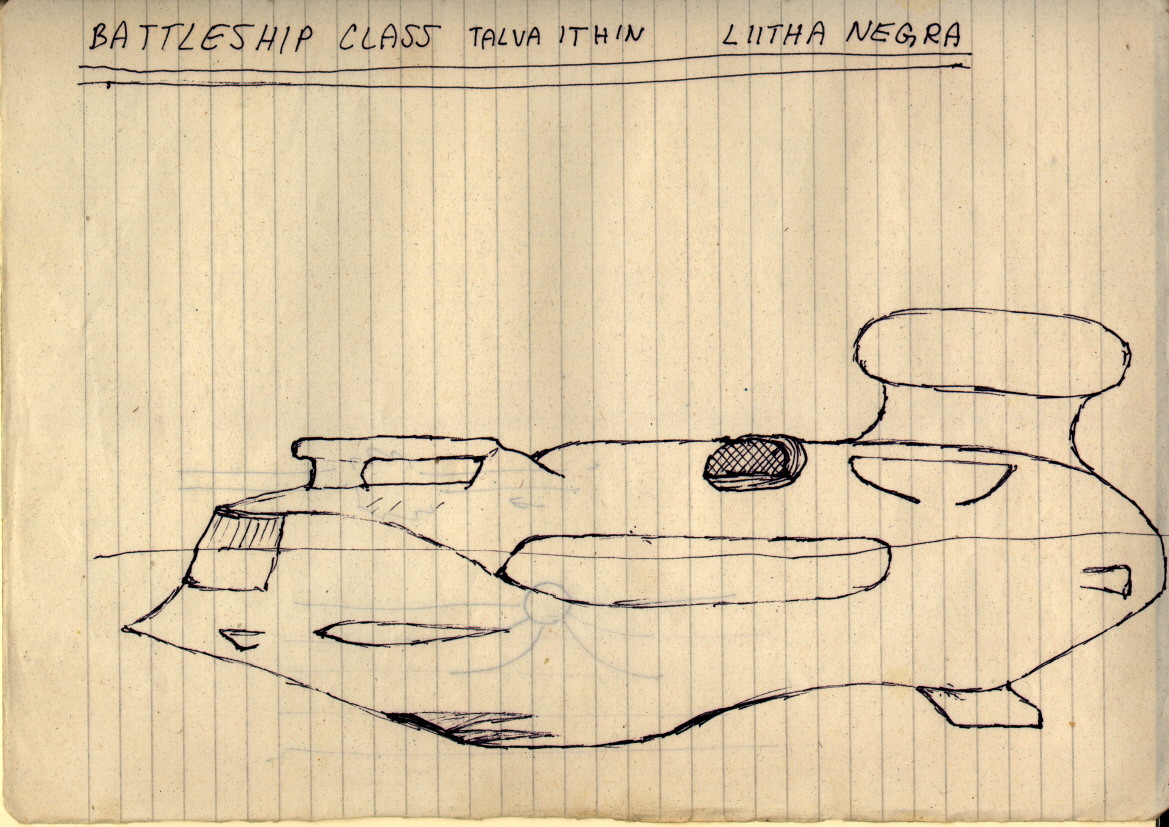 BATTLESHIP CLASS TALVA ITHIN LIITHA NEGRA